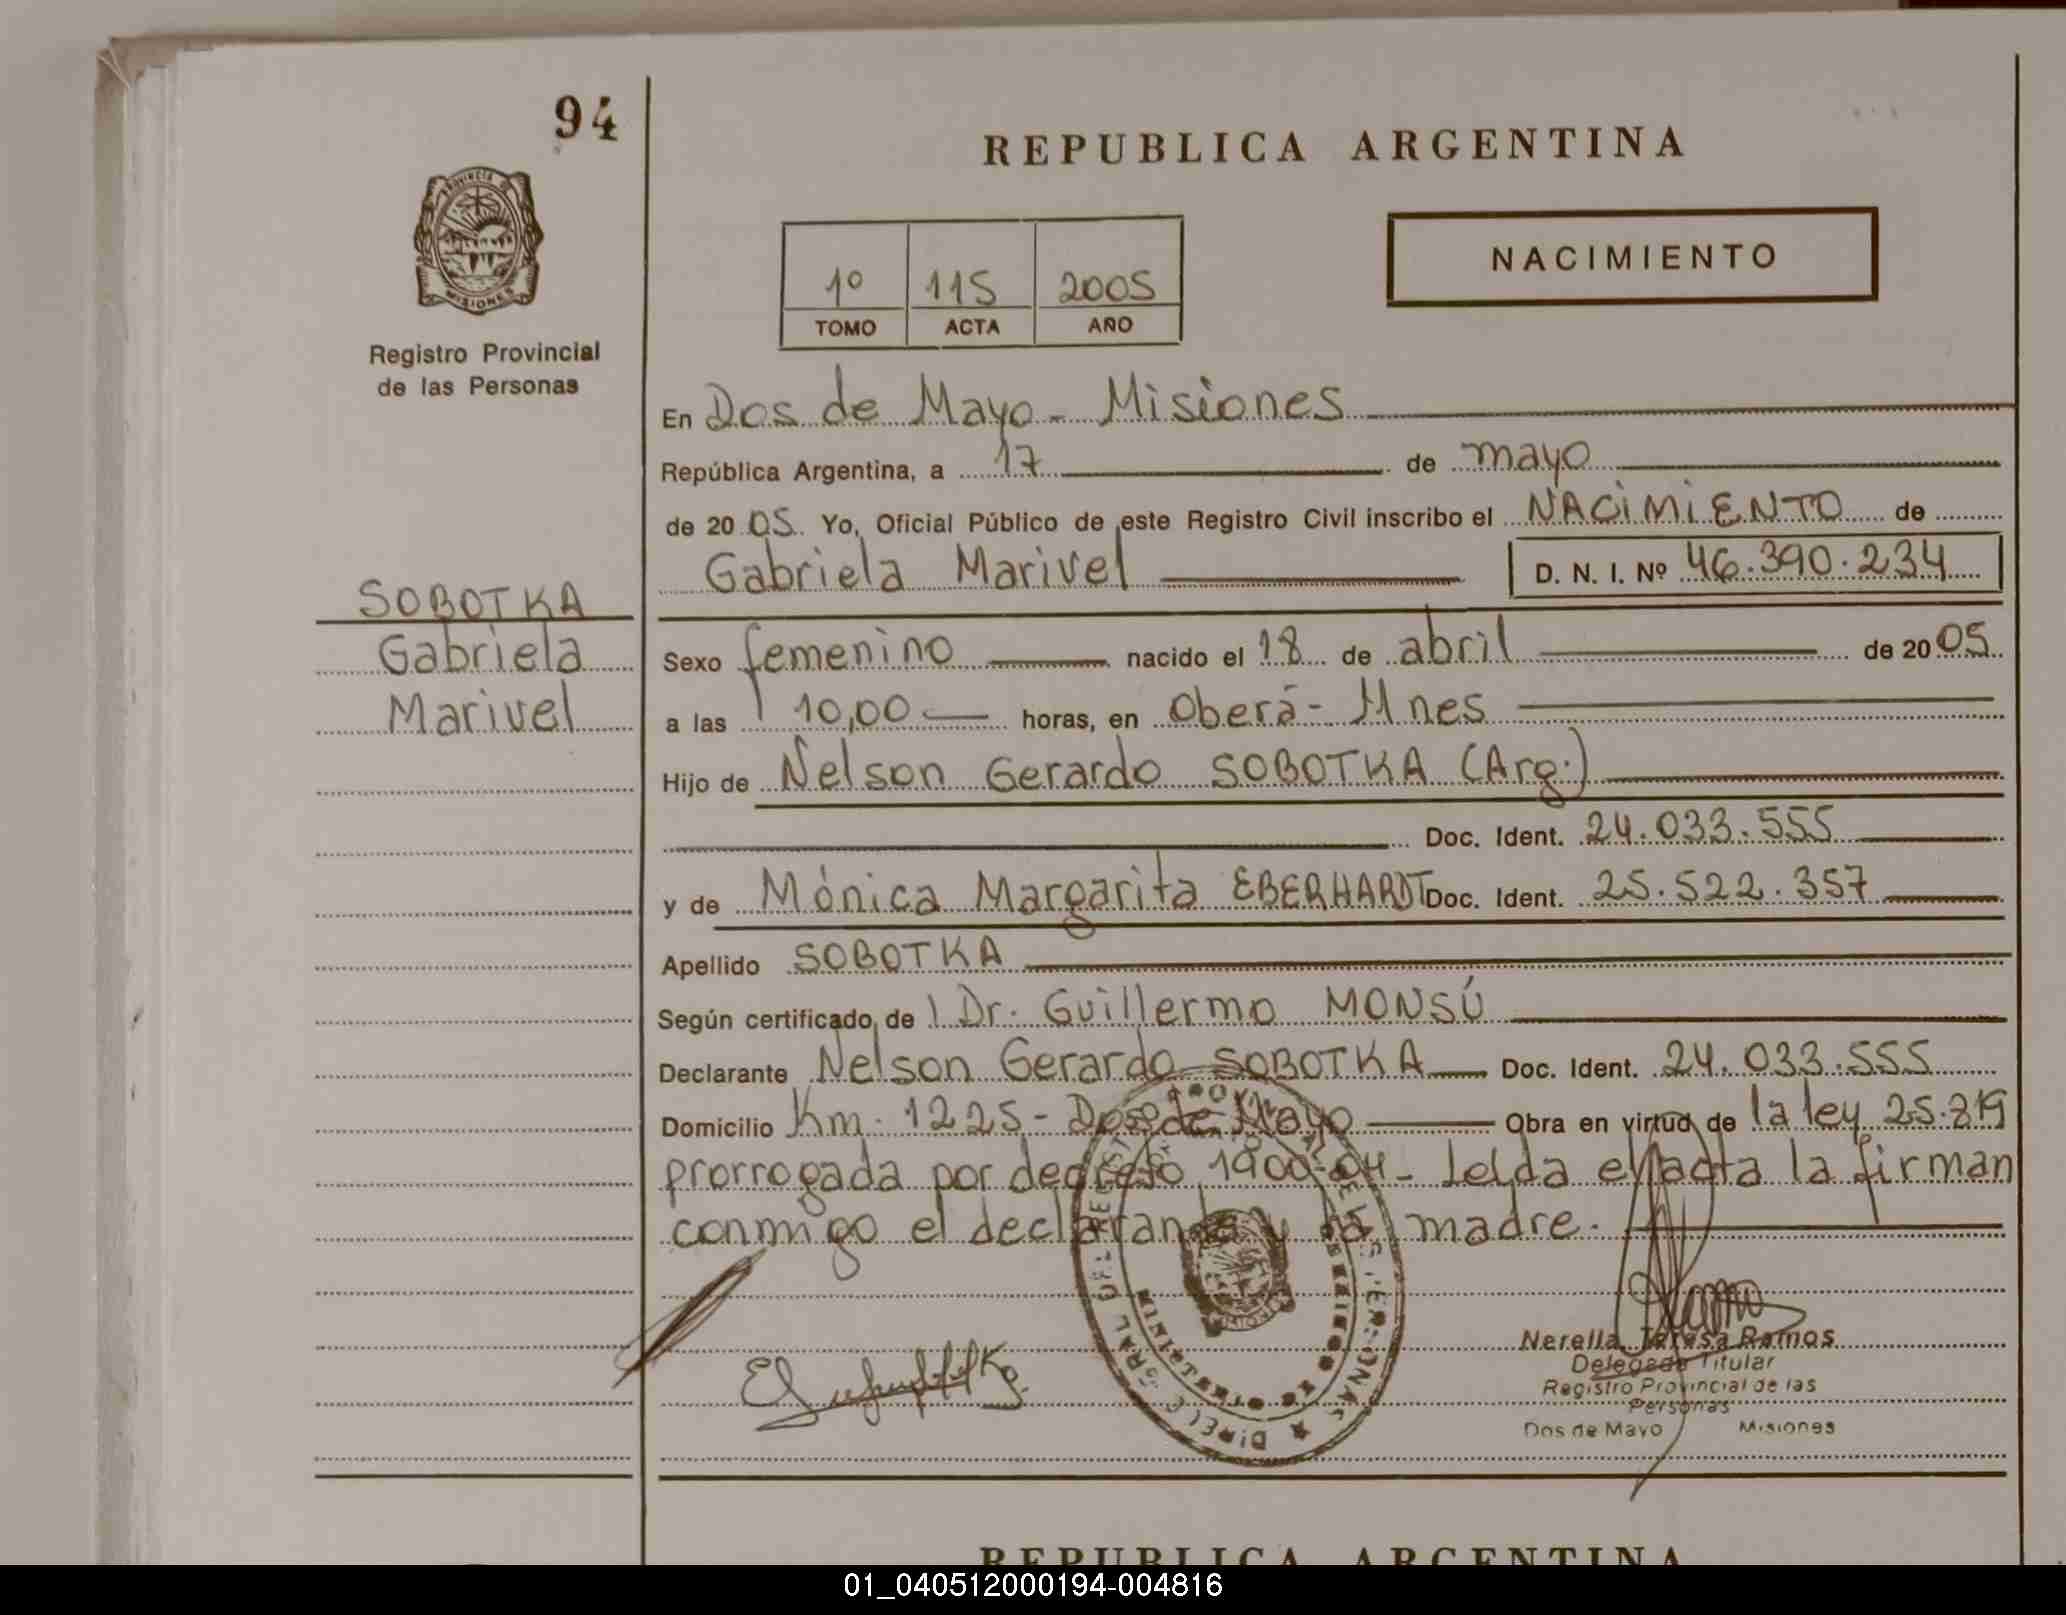 94
REPUBLICA ARGENTINA
PROVINCIA DE
MISIONES
Registro Provincial
de las Personas
NACIMIENTO
1º 115 2005
TOMO ACTA AÑO
En Dos de Mayo - Misiones
República Argentina, a 17 de mayo
de 2005. Yo, Oficial Público de este Registro Civil inscribo el NACIMIENTO de
Gabriela Marivel D. N. I. Nº 46.390.234
SOBOTKA
Gabriela
Marivel
Sexo femenino nacido el 18 de abril de 2005
a las 10,00 horas, en Oberá - Mnes
Hijo de Nelson Gerardo SOBOTKA (Arg.)
Doc. Ident. 24.033.555
y de Mónica Margarita EBERHARDT Doc. Ident. 25.522.357
Apellido SOBOTKA
Según certificado de Dr. Guillermo MONSÚ
Declarante Nelson Gerardo SOBOTKA Doc. Ident. 24.033.555
Domicilio Km. 1225 - Dos de Mayo Obra en virtud de la ley 25.819
prorrogada por decreto 1900-04 - Leída el acta la firman
conmigo el declarante y la madre.
Nerella Teresa Ramos
Delegada Titular
Registro Provincial de las
Personas
Dos de Mayo Misiones
REPUBLICA ARGENTINA
01_040512000194-004816